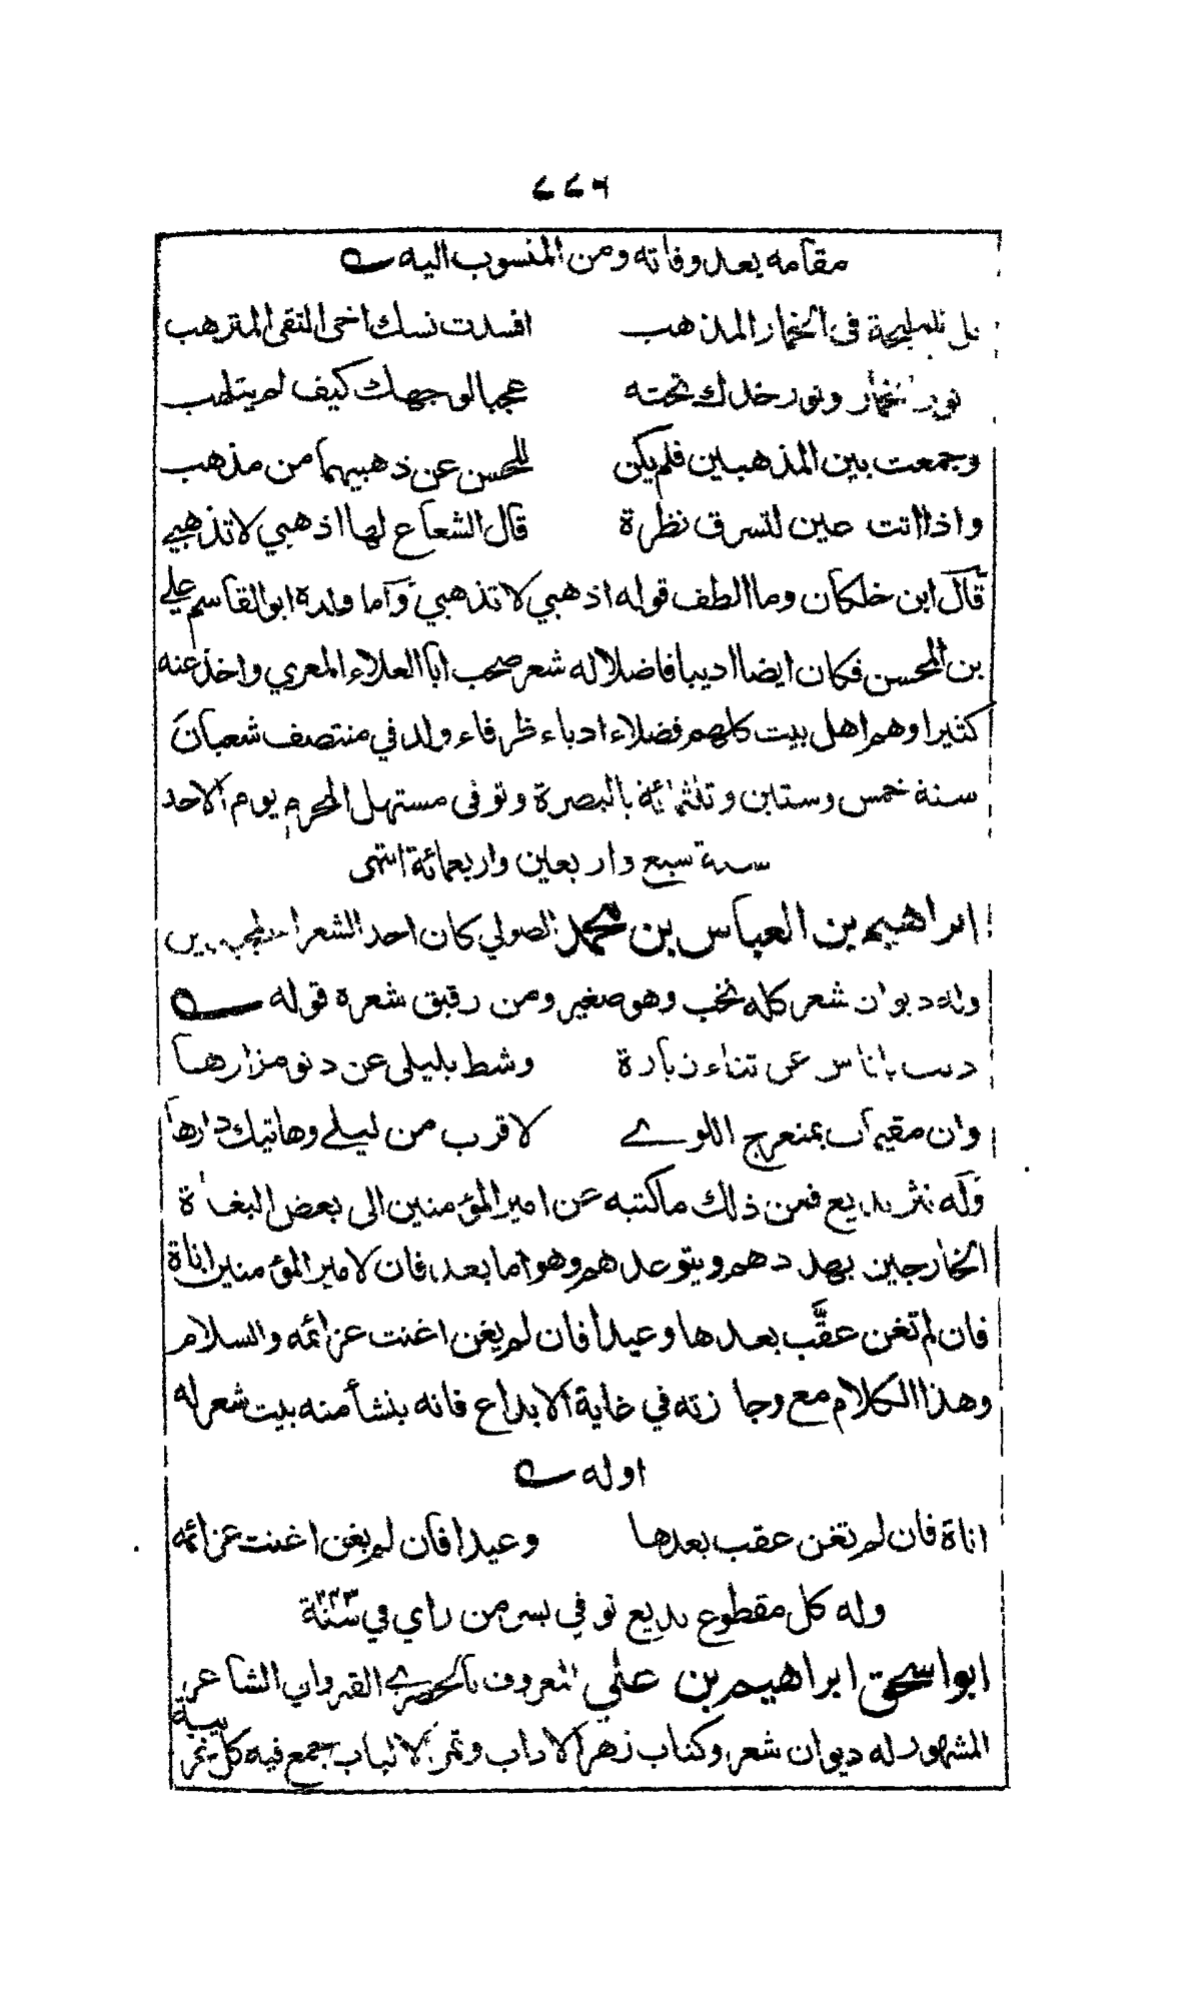 ٤٤٦
مقامه بعد وفاته ومن المنسوب اليه
قل للمليحة في الخمار المذهب افسدت نسك اخى التقى المترهب
نور الخمار ونور خدك تحته عجبا لوجهك كيف لم يتلهب
وجمعت بين المذهبين فلم يكن للحسن عن ذهبيهما من مذهب
واذا اتت عين لتسرق نظرة قال الشعاع لها اذهبي لا تذهبي
قال ابن خلكان وما الطف قوله اذهبي لا تذهبي وآما ولده ابو القاسم علي
بن المحسن فكان ايضا اديبا فاضلا له شعر صحب ابا العلاء المعري واخذ عنه
كثيرا وهم اهل بيت كلهم فضلاء ادباء ظرفاء ولد في منتصف شعبان
سنة خمس وستين وثلثمائة بالبصرة وتوفى مستهل المحرم يوم الاحد
سنة سبع واربعين واربعمائة انتهى
ابراهيم بن العباس بن محمد الصولي كان احد الشعرا المجيدين
وله ديوان شعر كله نخب وهو صغير ومن رقيق شعره قوله
دنت باناس عن تناء زيارة وشط بليلى عن دنو مزارها
وان مقيمات بمنعرج اللوے لاقرب من ليلے وهاتيك دارها
وله نثر بديع فمن ذلك ما كتبه عن امير المؤمنين الى بعض البغاة
الخارجين يهددهم ويتوعدهم وهو اما بعد، فان لامير المؤمنين اناة
فان لم تغن عقَّب بعدها وعيدا فان لم يغن اغنت عزائمه والسلام
وهذا الكلام مع وجازته في غاية الابداع فانه ينشأ منه بيت شعر له
اوله
اناة فان لم تغن عقب بعدها وعيدا فان لم يغن اغنت عزائمه
وله كل مقطوع بديع توفي بسر من راي في سنة
ابو اسحق ابراهيم بن علي المعروف بالحصرے القيرواني الشاعر
المشهور له ديوان شعر وكتاب زهر الاداب وثمر الالباب جمع فيه كل